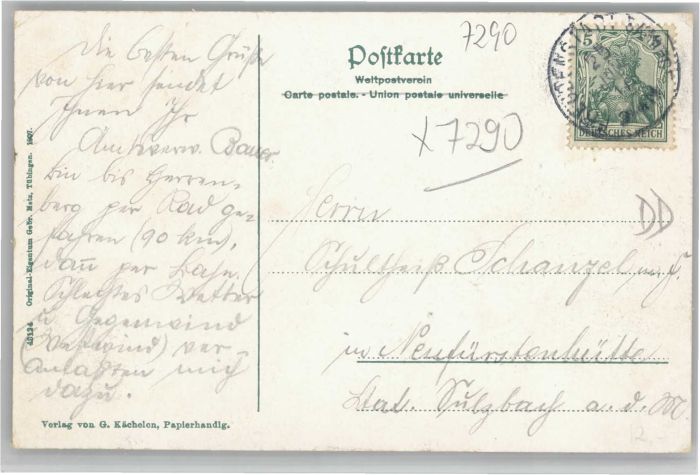 Die besten Grüße
von hier sendet
Ihnen Ihr
Amtsverw. Bauer
bin bis Herren-
berg per Rad ge-
fahren (90 km),
dann per Bahn.
Schlechtes Wetter
u. Gegenwind
(Westwind) ver-
anlaßten mich
dazu.
Verlag von G. Kächelen, Papierhandlg.
40124 Original-Eigentum Gebr. Metz, Tübingen. 1907.
7290
Postkarte
Weltpostverein
Carte postale. - Union postale universelle
X 7290
5
DEUTSCHES REICH
DD
Herrn
Schultheiß Schanzel
in Neufürstenhütte
Stat. Sulzbach a. d. M